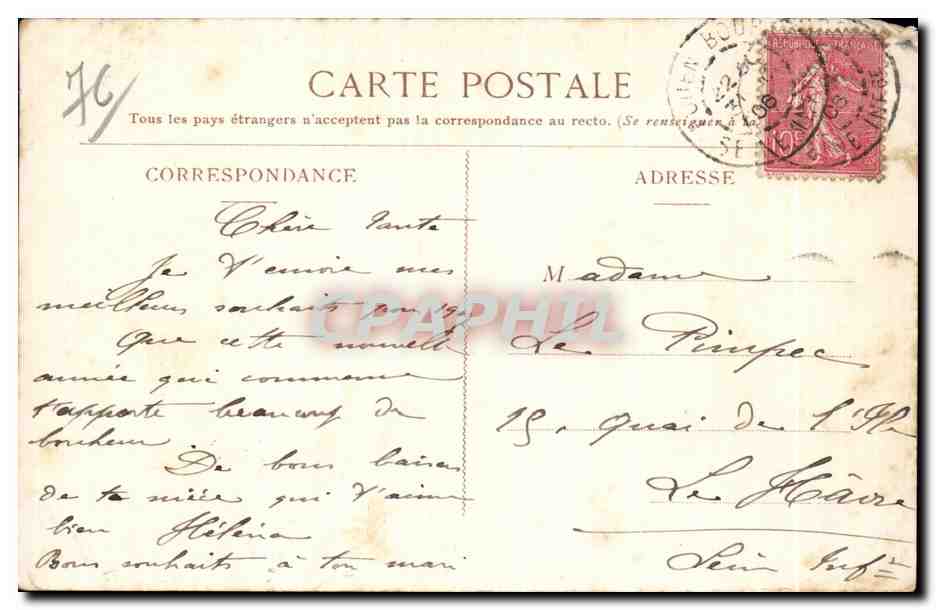 76
CARTE POSTALE
Tous les pays étrangers n'acceptent pas la correspondance au recto. (Se renseigner à la
REPUBLIQUE FRANÇAISE
10c
ROUEN BOU
06
SEINE INFRE
CORRESPONDANCE
ADRESSE
Chère tante
Je t'envoie mes
meilleurs souhaits pour 190
Que cette nouvelle
année qui commence
t'apporte beaucoup de
bonheur
De bons baisers
de ta nièce qui t'aime
bien Héléna
Bons souhaits à ton mari
Madame
Le Pimpec
15, Quai de l'Ile
Le Hâvre
Sein Infre
CPAPHIL